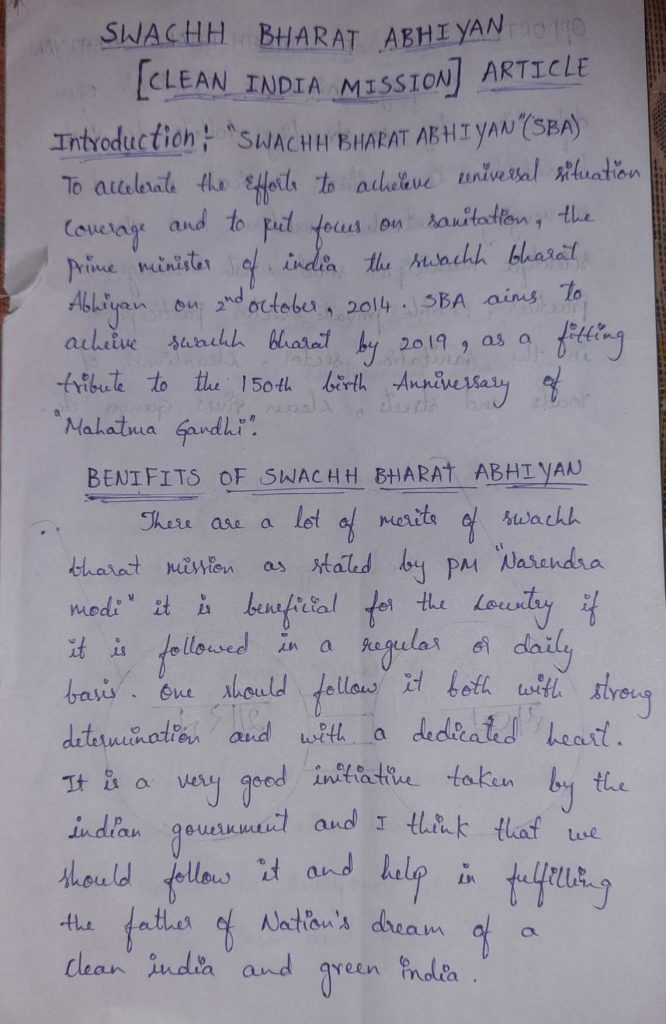 SWACHH BHARAT ABHIYAN
[CLEAN INDIA MISSION] ARTICLE
Introduction: "SWACHH BHARAT ABHIYAN" (SBA)
To accelerate the Efforts to acheieve universal situation
Coverage and to put focus on sanitation, the
prime minister of india the swachh bharat
Abhiyan on 2nd october, 2014. SBA aims to
acheive swachh bharat by 2019, as a fitting
tribute to the 150th birth Anniversary of
"Mahatma Gandhi".
BENIFITS OF SWACHH BHARAT ABHIYAN
There are a lot of merits of swachh
bharat mission as stated by PM "Narendra
modi" it is beneficial for the country if
it is followed in a regular or daily
basis. One should follow it both with strong
determination and with a dedicated heart.
It is a very good initiative taken by the
indian government and I think that we
should follow it and help in fulfilling
the father of Nation's dream of a
clean india and green india.